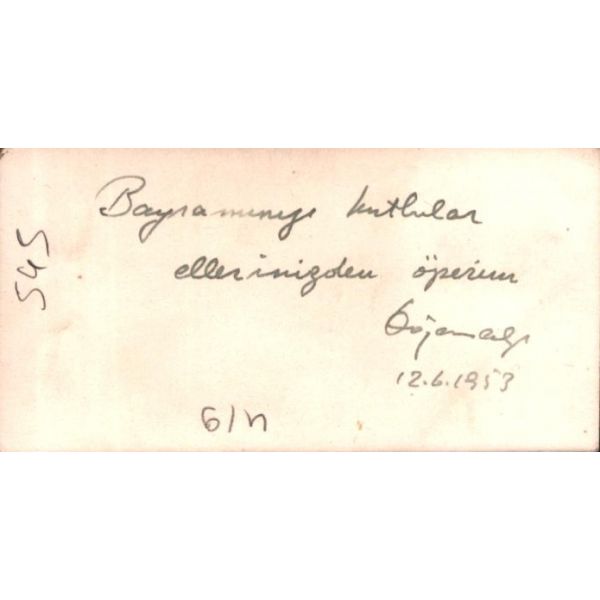 Bayramınızı kutlular
ellerinizden öperim
12.6.1953
545
6/n